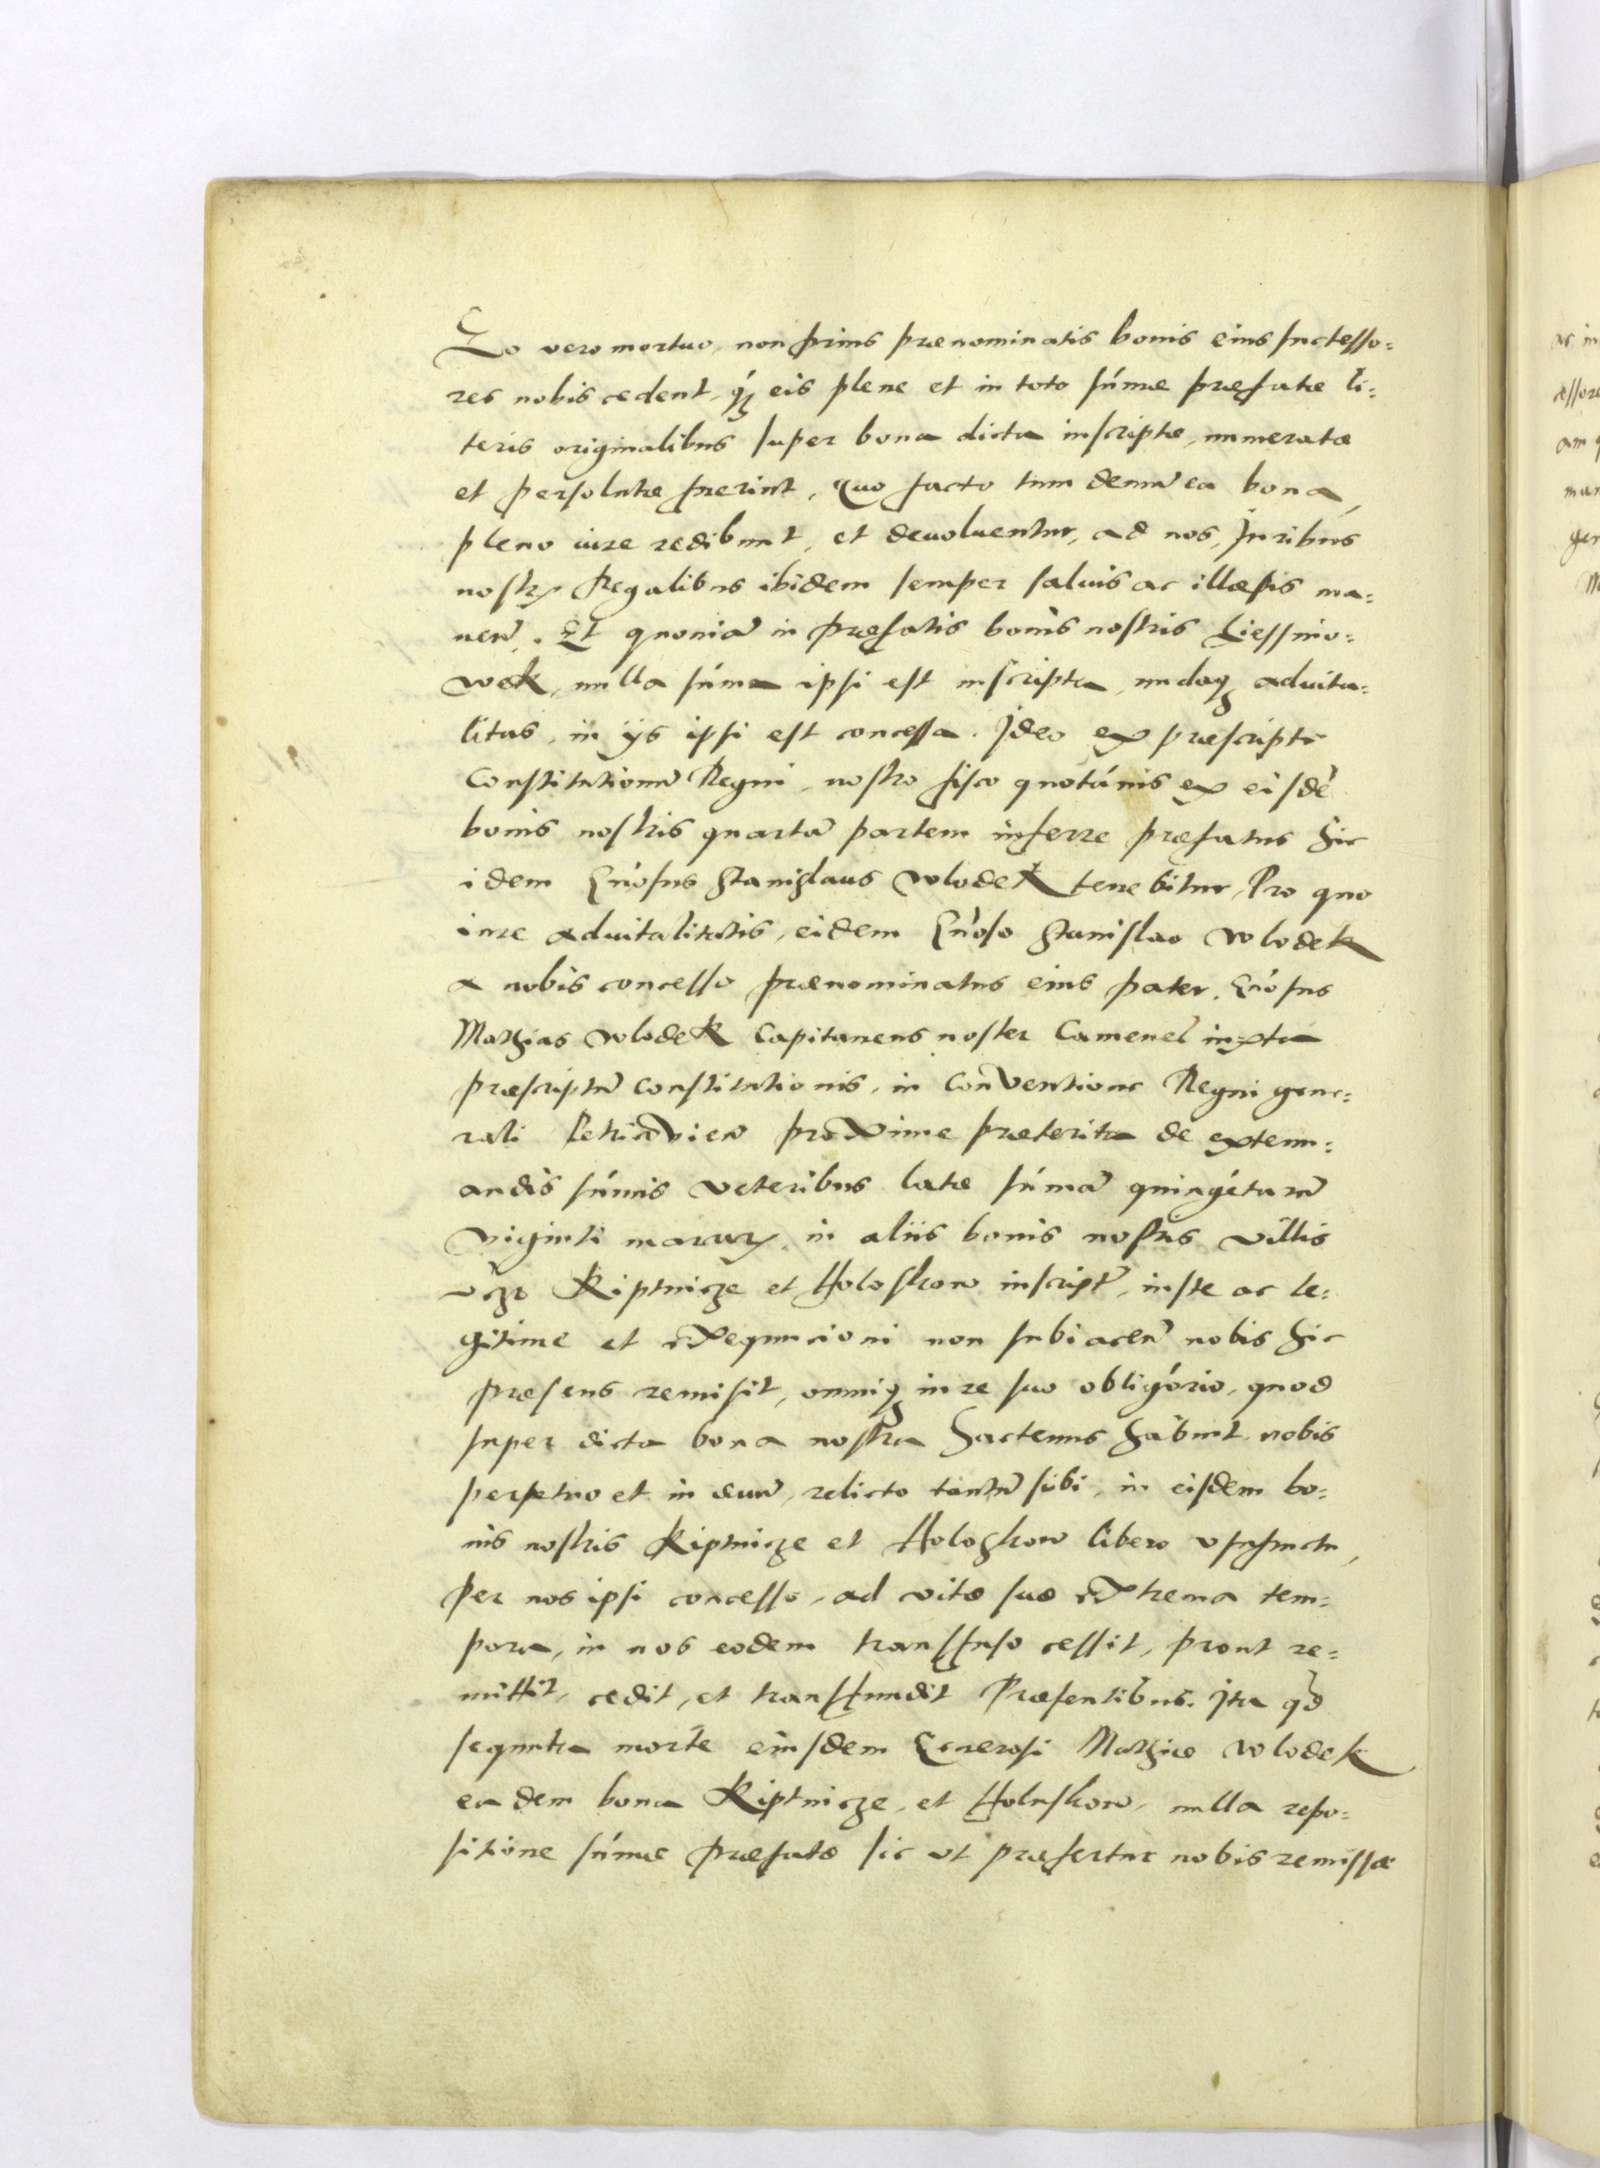 Eo vero mortuo, non prius prænominatis bonis eius successo=
res nobis cedent, q́ꝫ eis plene et in toto sum̃æ præfatæ li=
teris originalibus super bona dicta inscriptæ, numeratæ
et persolutæ fuerint, Quo facto tum demũ ea bona,
pleno iure redibunt, et deuoluentur, ad nos, Juribus
nostrꝭ Regalibus ibidem semper saluis ac illæsis ma=
nen̄. Et quoniã in præfatis bonis nostris Liessnio=
wek, nulla sum̃a ipsi est inscripta, nudaqꝫ aduita=
litas, in ijs ipsi est concessa. Ideo ex præscripto
Constitutionũ Regni, nostro fisco quotánis ex eisdẽ
bonis nostris quartã partem inferre præfatus hic
idem Gn̄osus Stanislaus Wlodek tenebitur, Pro quo
iure aduitalitatis, eidem Gn̄oso Stanislao Wlodek
a nobis concesso prænominatus eius pater, Gn̄osus
Mathias Wlodek Capitaneus noster Camenec̄ iuxta
præscriptũ constitutionis, in Conventione Regni gene=
rali Petricovien̄ proxime præterita de extenu=
andis sum̃is veteribus latæ sum̃ã quingẽtarũ
viginti marcarꝭ, in aliis bonis nostris villis
vcꝫ Kiptnicze et Holoskow inscript̄, iuste ac le=
gitime et exequucioni non subiacen̄ nobis hic
præsens remisit, omniqꝫ iure suo obligc̄orio, quod
super dicta bona nostra hactenus habuit nobis
perpetuo et in æuũ, relicto tantũ sibi, in eisdem bo=
nis nostris Kiptnicze et Holoskow libero vsufructu,
per nos ipsi concesso, ad vitæ suæ extrema tem=
pora, in nos eodem transfuso cessit, prout re=
mittit, cedit, et transfundit Præsentibus. Ita qd̃
sequuta morte eiusdem Generosi Mathiæ Wlodek
eadem bona Kiptnicze, et Holuskow, nulla repo=
sitione sum̃æ præfatæ sic vt præfertur nobis remissæ